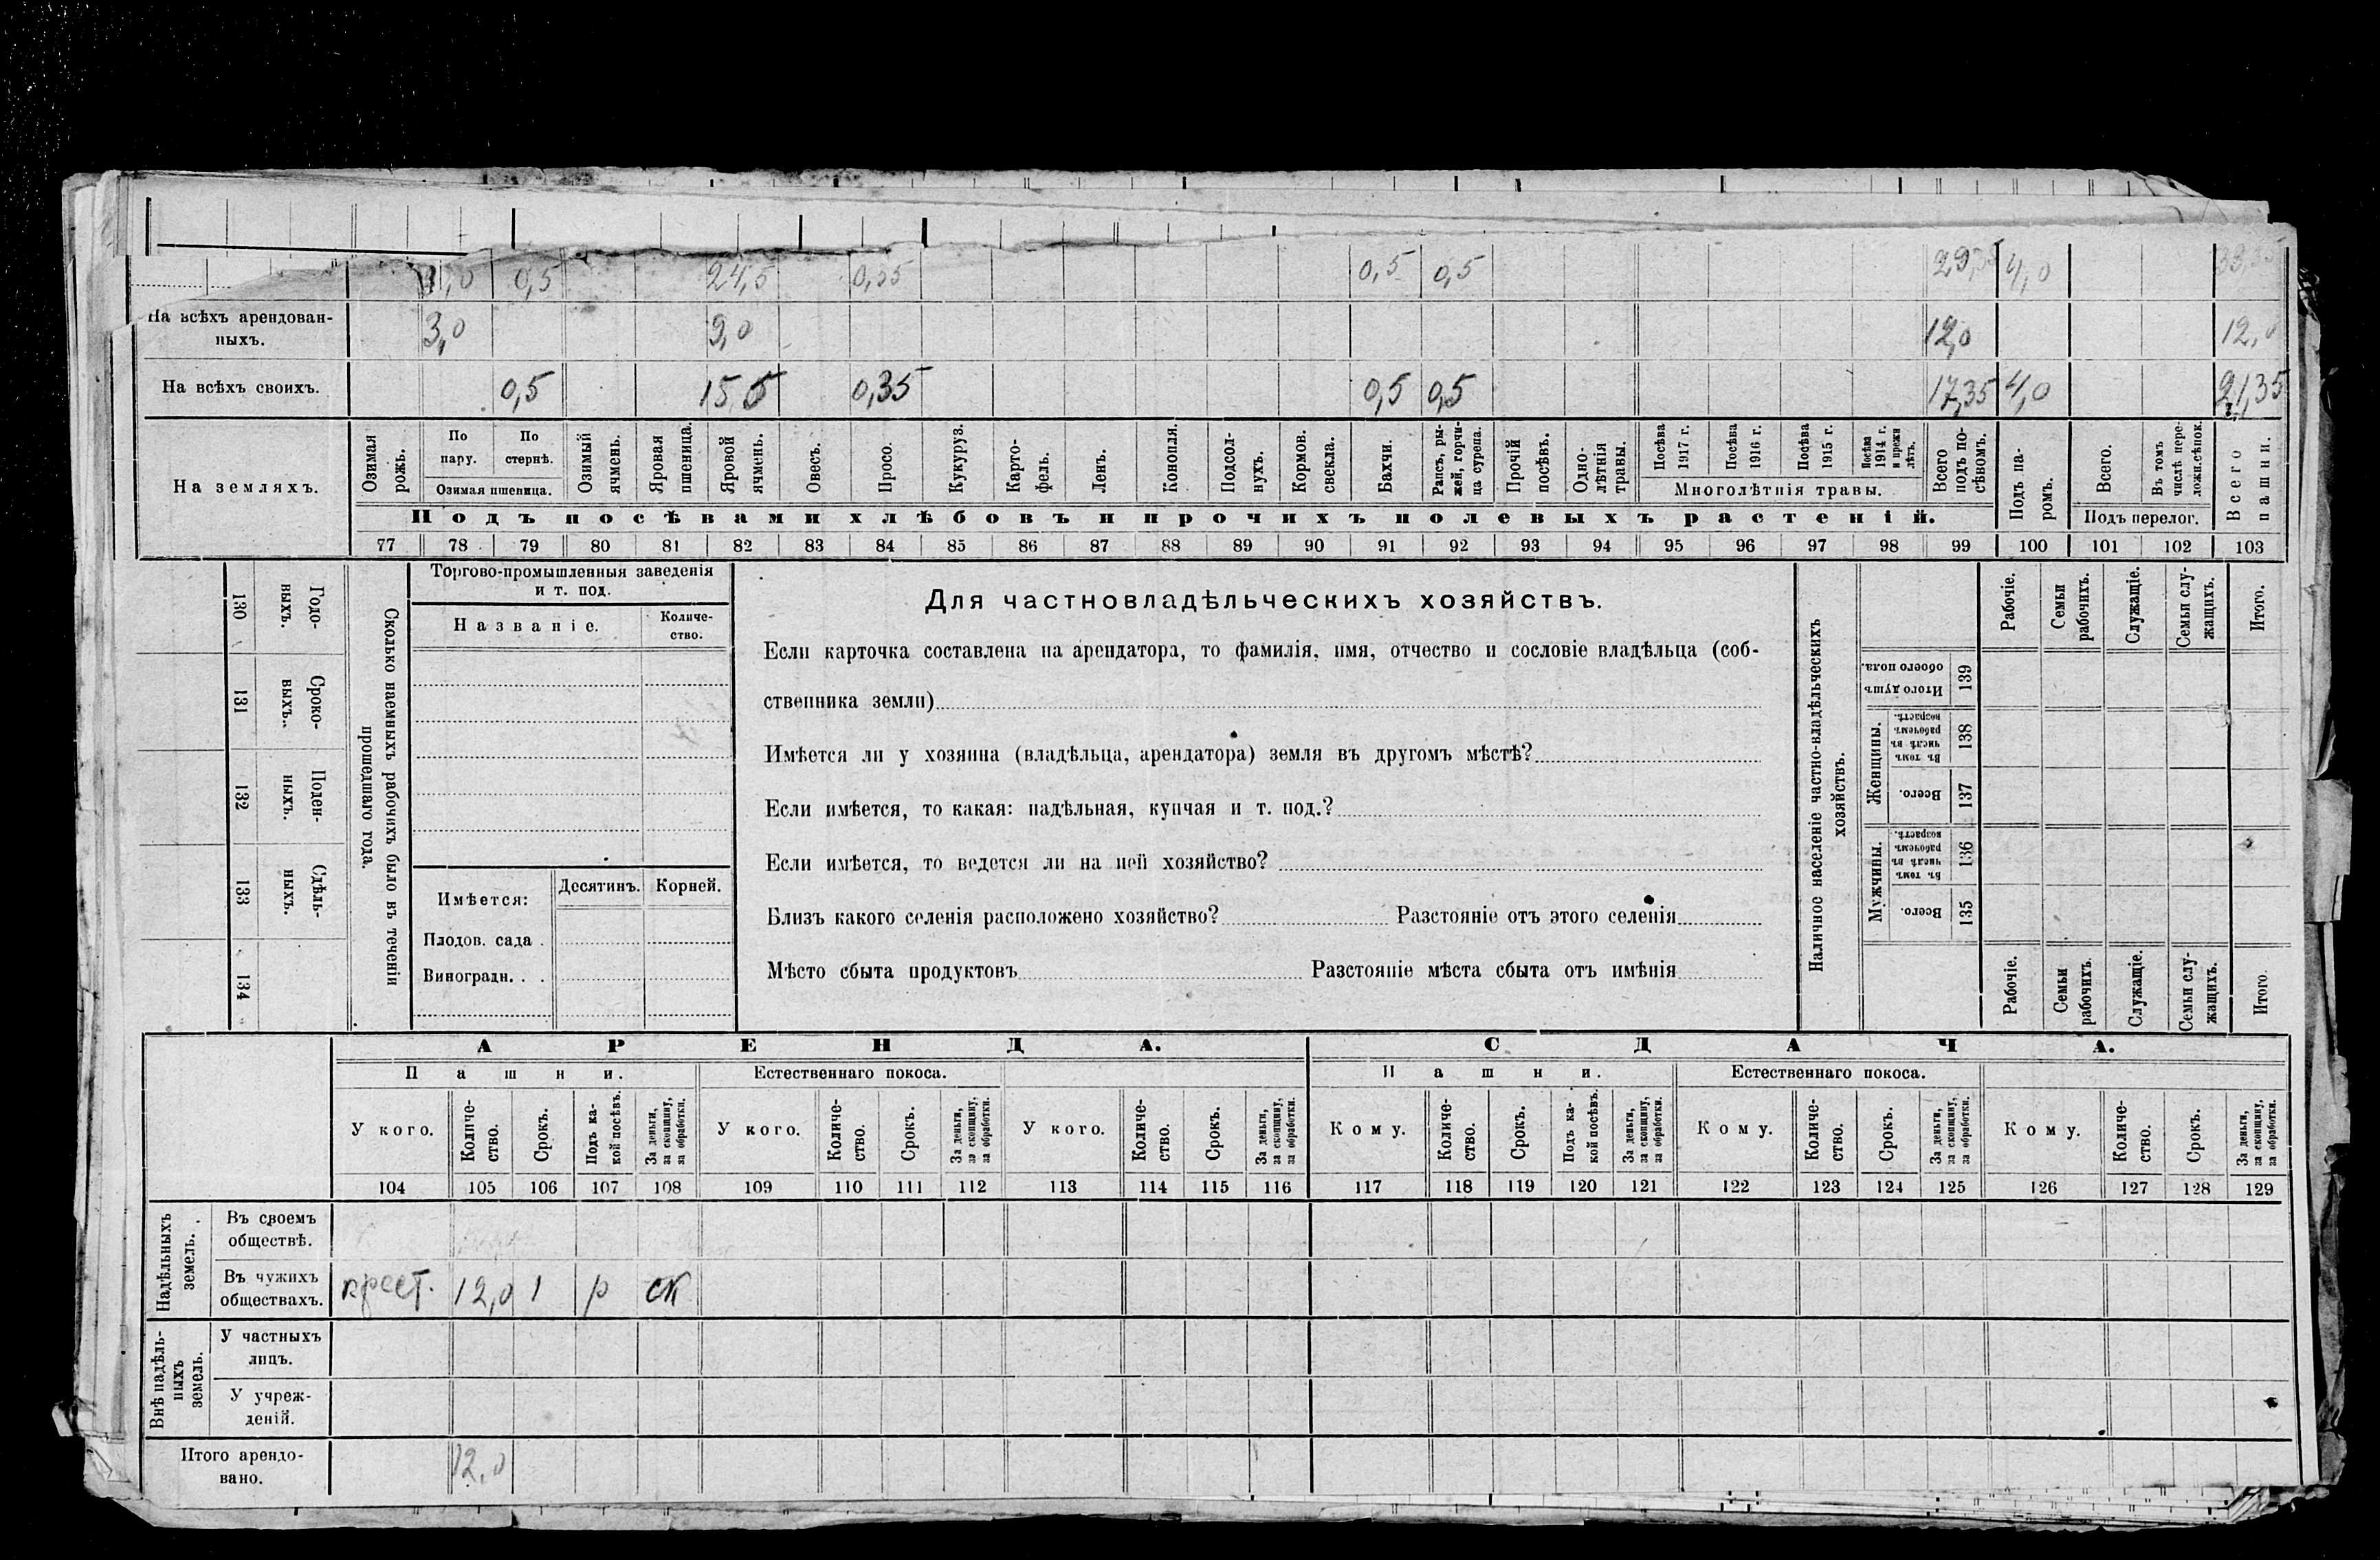 0,5 24,5 0,35 0,5 0,5 4,0
На всѣхъ арендован-
ныхъ.
3,0 9,0 12,0 12,0
На всѣхъ своихъ. 0,5 15,5 0,35 0,5 0,5 17,35 4,0 21,35
На земляхъ.
Озимая рожь.
По пару.
По стернѣ.
Озимая пшеница.
Озимый ячмень.
Яровая пшеница.
Яровой ячмень.
Овесъ.
Просо.
Кукуруз.
Карто-
фель.
Ленъ.
Конопля.
Подсол-
нухъ.
Кормов. свекла.
Бахчи.
Рапсъ, ры-
жей, горчи-
ца сурепа.
Прочій посѣвъ.
Одно-
лѣтнія травы.
Посѣва 1917 г.
Посѣва 1916 г.
Посѣва 1915 г.
Посѣва 1914 г. и прежн лѣтъ.
Многолѣтнія травы.
Всего подъ по-
сѣвомъ.
Подъ па-
ромъ.
Всего.
Въ томъ числѣ пере-
ложн.сѣнок.
Подъ перелог.
Всего пашни.
Подъ посѣвами хлѣбовъ и прочихъ полевыхъ растеній.
77 78 79 80 81 82 83 84 85 86 87 88 89 90 91 92 93 94 95 96 97 98 99 100 101 102 103
130 Годо-
выхъ.
131 Сроко-
выхъ..
132 Поден-
ныхъ.
133 Сдѣль-
ныхъ.
134
Сколько наемныхъ рабочихъ было въ теченіи
прошедшаго года.
Торгово-промышленныя заведенія
и т. под.
Названіе.
Количе-
ство.
Имѣется:
Десятинъ. Корней.
Плодов. сада .
Виноградн. . .
Для частновладѣльческихъ хозяйствъ.
Если карточка составлена на арендатора, то фамилія, имя, отчество и сословіе владѣльца (соб-
ственника земли)
Имѣется ли у хозяина (владѣльца, арендатора) земля въ другомъ мѣстѣ?
Если имѣется, то какая: надѣльная, купчая и т. под.?
Если имѣется, то ведется ли на ней хозяйство?
Близъ какого селенія расположено хозяйство? Разстояніе отъ этого селенія
Мѣсто сбыта продуктовъ Разстояніе мѣста сбыта отъ имѣнія
Наличное населеніе частно-владѣльческихъ
хозяйствъ.
Рабочіе.
Семьи рабочихъ.
Служащіе.
Семьи слу-
жащихъ.
Итого.
Итого душъ обоего пола. 139
Женщины.
Въ томъ числѣ въ рабочемъ возрастѣ. 138
Всего. 137
Мужчины.
Въ томъ числѣ въ рабочемъ возрастѣ. 136
Всего. 135
Рабочіе.
Семьи рабочихъ.
Служащіе.
Семьи слу-
жащихъ.
Итого.
АРЕНДА. СДАЧА.
Пашни. Естественнаго покоса. Пашни. Естественнаго покоса.
У кого.
Количе-
ство.
Срокъ.
Подъ ка-
кой посѣвъ.
За деньги, за скопщину, за обработки.
У кого.
Количе-
ство.
Срокъ.
За деньги, за скопщину, за обработки.
У кого.
Количе-
ство.
Срокъ.
За деньги, за скопщину, за обработки.
Кому.
Количе-
ство.
Срокъ.
Подъ ка-
кой посѣвъ.
За деньги, за скопщину, за обработки.
Кому.
Количе-
ство.
Срокъ.
За деньги, за скопщину, за обработки.
Кому.
Количе-
ство.
Срокъ.
За деньги, за скопщину, за обработки.
104 105 106 107 108 109 110 111 112 113 114 115 116 117 118 119 120 121 122 123 124 125 126 127 128 129
Надѣльныхъ земель.
Въ своемъ
обществѣ.
Въ чужихъ
обществахъ.
крест. 12,0 1 р ск
Внѣ надѣль-
ныхъ земель.
У частныхъ
лицъ.
У учреж-
деній.
Итого арендо-
вано.
12,0